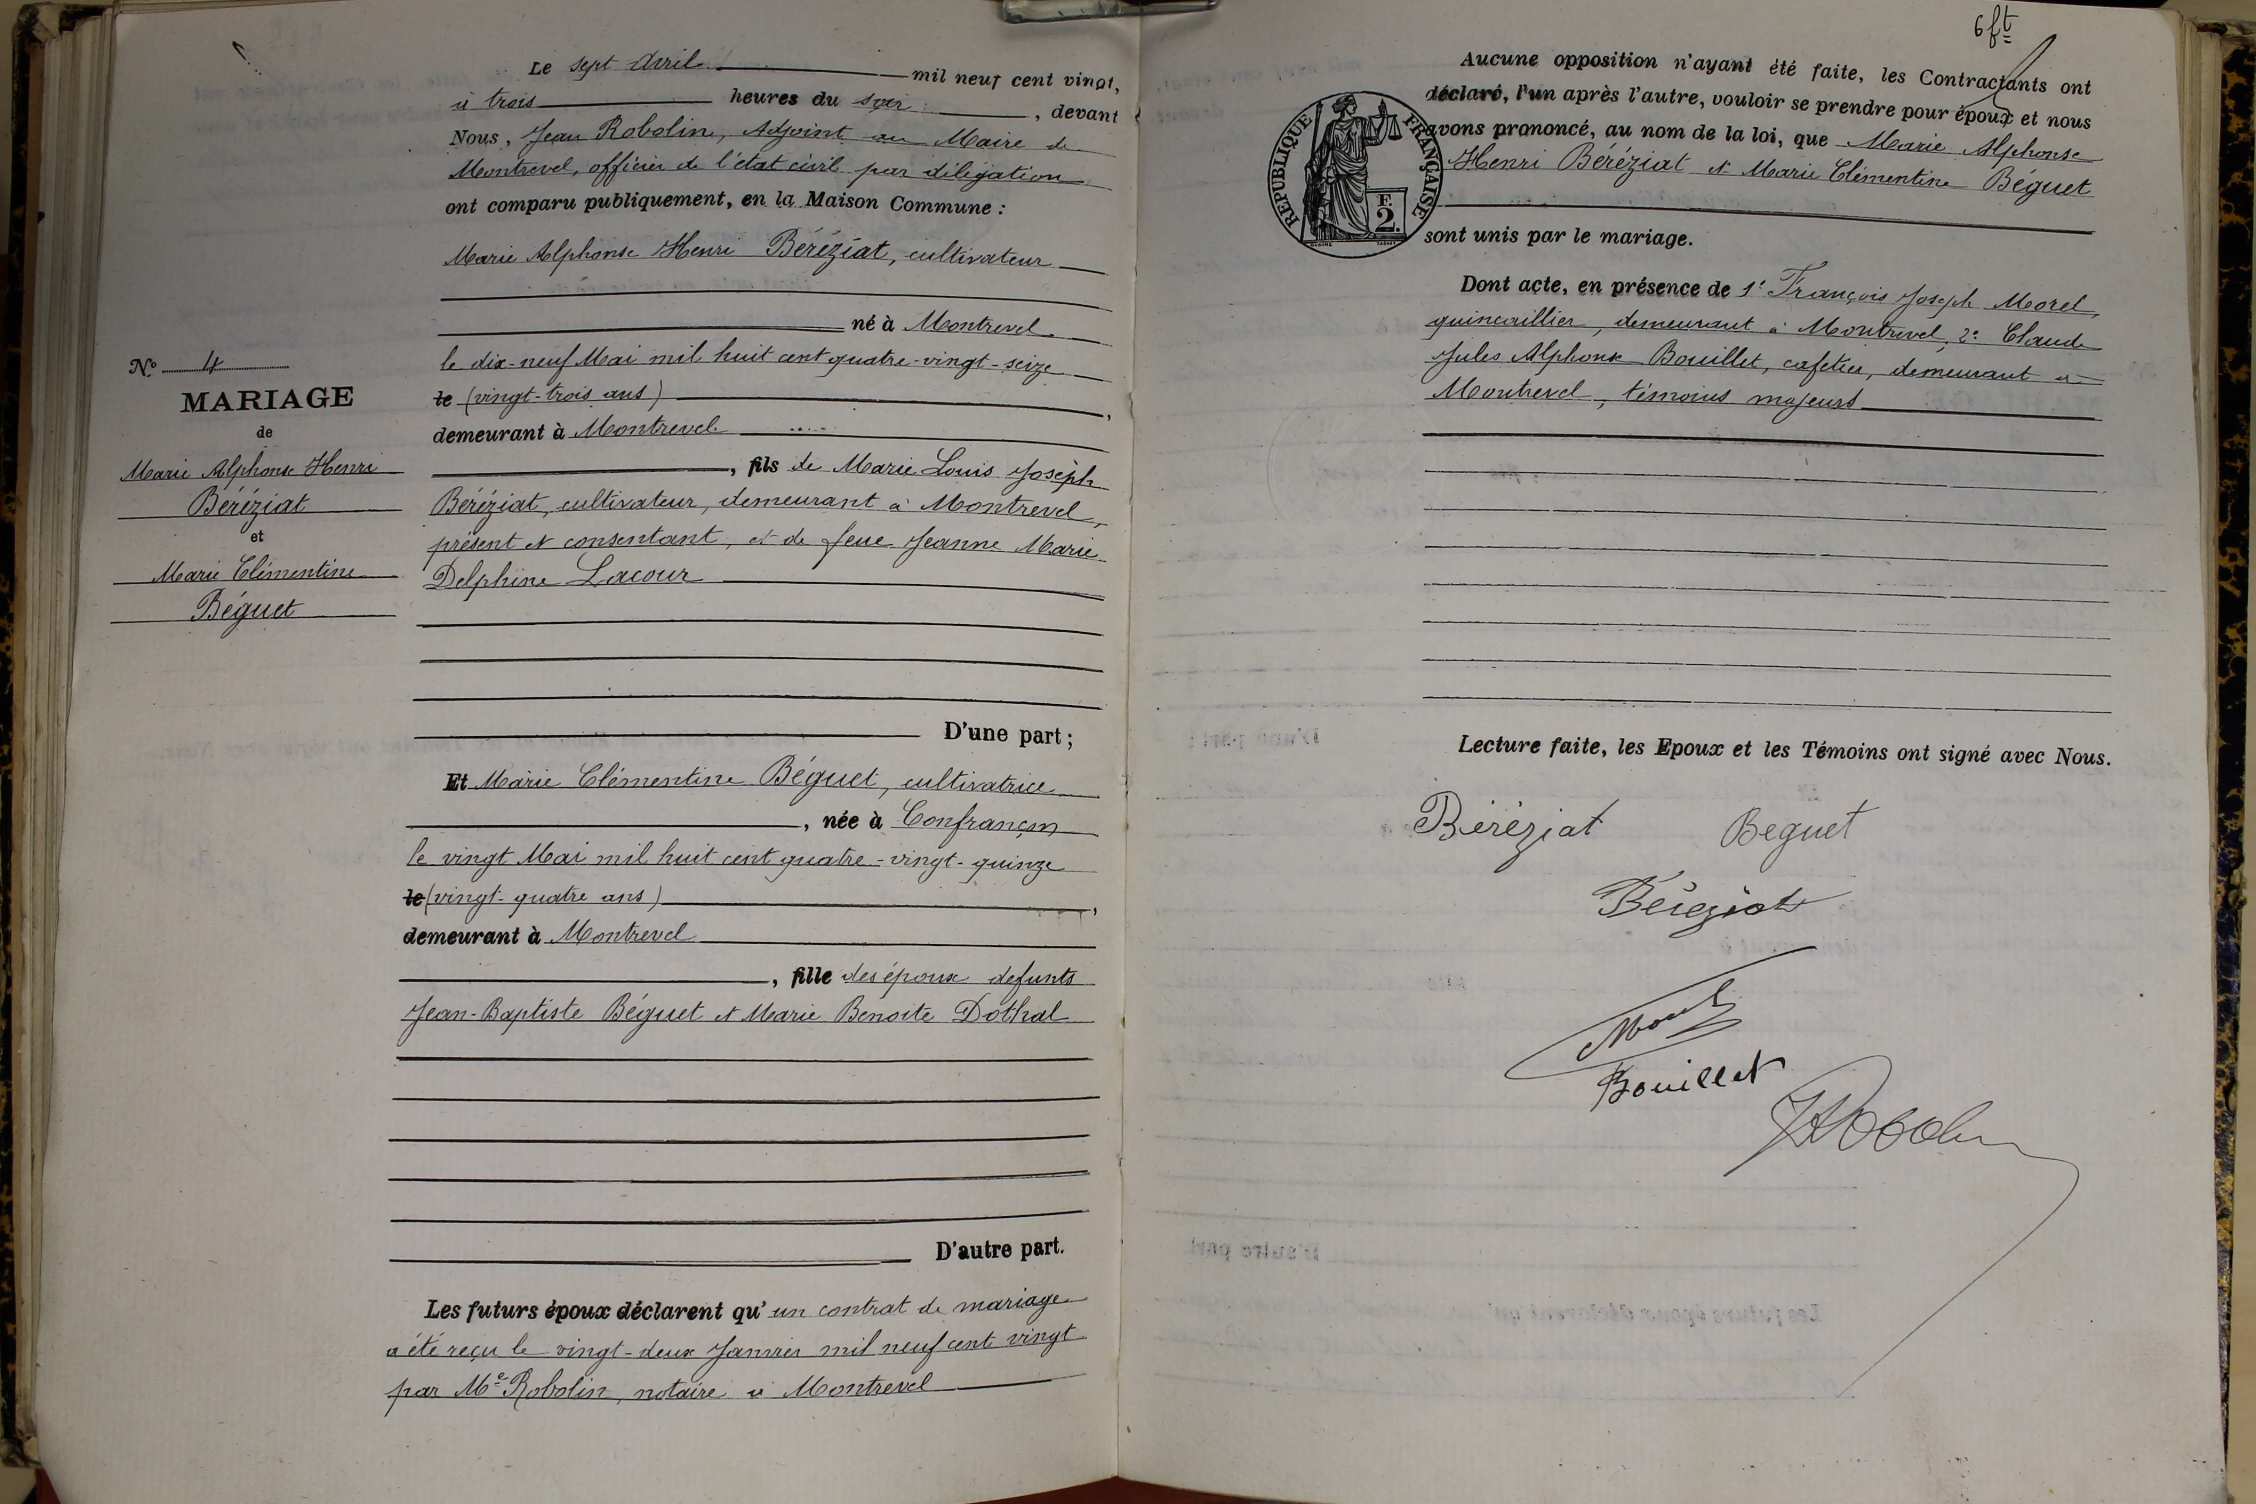 Le sept Avril mil neuf cent vingt,
à trois heures du soir, devant
Nous, Jean Robolin, Adjoint au Maire de
Montrevel, officier de l'état civil par délégation
ont comparu publiquement, en la Maison Commune :
Marie Alphonse Henri Béréziat, cultivateur
né à Montrevel
le dix-neuf Mai mil huit cent quatre-vingt-seize
le (vingt-trois ans),
demeurant à Montrevel
, fils de Marie Louis Joseph
Béréziat, cultivateur, demeurant à Montrevel,
présent et consentant, et de feue Jeanne Marie
Delphine Lacour
D'une part ;
Nº 4
MARIAGE
de
Marie Alphonse Henri
Béréziat
et
Marie Clémentine
Béguet
Et Marie Clémentine Béguet, cultivatrice
, née à Confrançon
le vingt Mai mil huit cent quatre-vingt-quinze
le (vingt-quatre ans),
demeurant à Montrevel
, fille des époux defunts
Jean-Baptiste Béguet et Marie Benoite Dothal
D'autre part.
Les futurs époux déclarent qu'un contrat de mariage
a été reçu le vingt-deux Janvier mil neuf cent vingt
par Me Robolin, notaire à Montrevel
6 ft
Aucune opposition n'ayant été faite, les Contractants ont
déclaré, l'un après l'autre, vouloir se prendre pour époux et nous
avons prononcé, au nom de la loi, que Marie Alphonse
Henri Béréziat et Marie Clémentine Béguet
sont unis par le mariage.
RÉPUBLIQUE FRANÇAISE
F.
2.
Dont acte, en présence de 1º François Joseph Morel,
quincaillier, demeurant à Montrevel, 2º Claude
Jules Alphonse Bouillet, cafetier, demeurant à
Montrevel, témoins majeurs
Lecture faite, les Epoux et les Témoins ont signé avec Nous.
Béréziat Beguet
Béréziat
Morel
Bouillet
J Robolin